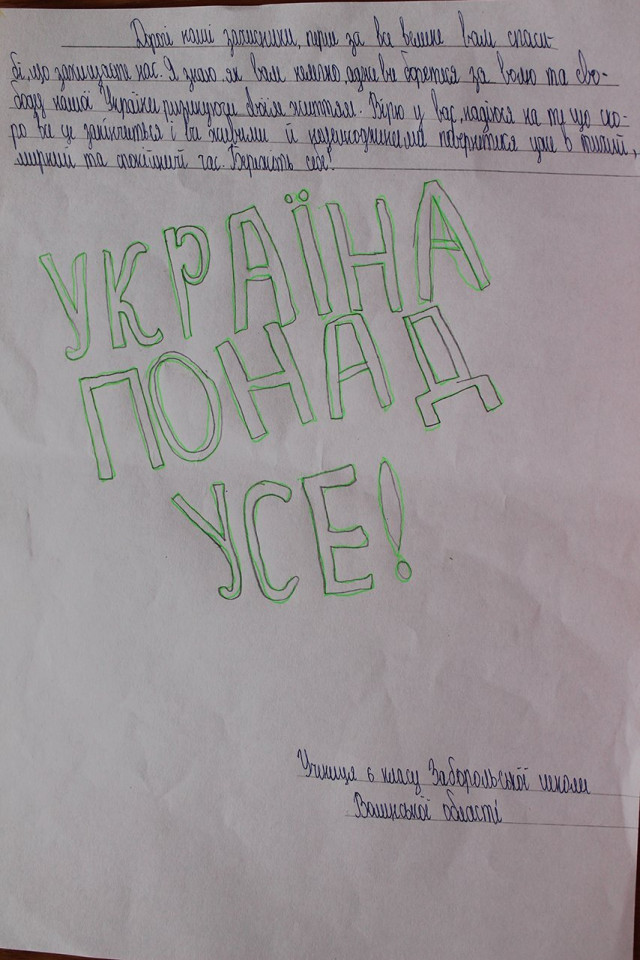 Дорогі наші захисники, перш за все велике вам спаси-
бі, що захищаєте нас. Я знаю, як вам нелегко, адже ви боретеся за волю та сво-
боду нашої України ризикуючи своїм життям. Вірю у вас, надіюся на те що ско-
ро все це закінчиться і ви живими й неушкодженими повернетися уже в тихий,
мирний та спокійний час. Бережіть себе!
УКРАЇНА
ПОНАД
УСЕ!
Учниця 6 класу Заборольської школи
Волинської області